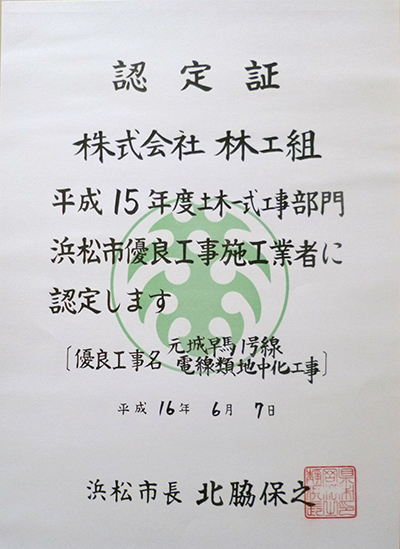 認定証
株式会社 林工組
平成15年度土木一式工事部門
浜松市優良工事施工業者に
認定します
〔優良工事名 元城早馬1号線
電線類地中化工事〕
平成 16年 6月 7日
浜松市長 北脇保之